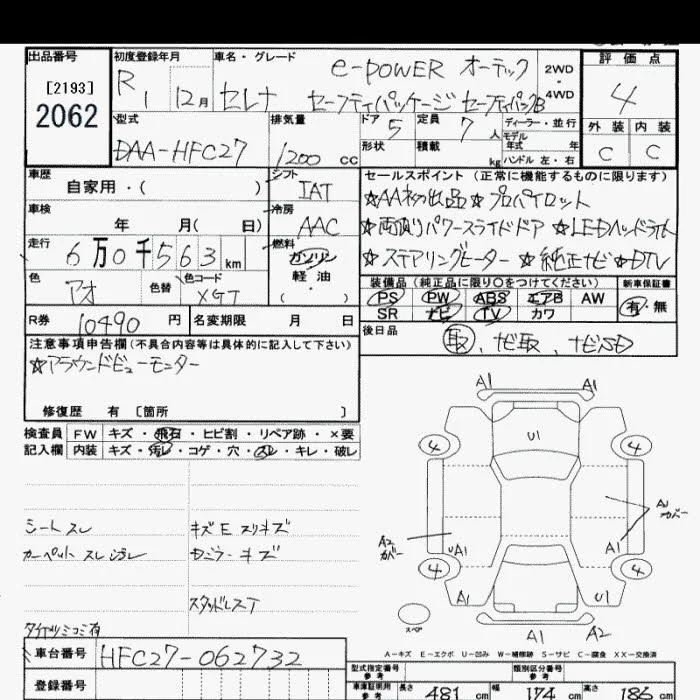 出品番号 初度登録年月 車名・グレード 評価点
[2193] R1 12月 セレナ e-POWER オーテック 2WD・4WD 4
2062 セーフティパッケージ セーフティパックB
型式 排気量 ドア 5 定員 7人 ディーラー・並行 外装 内装
DAA-HFC27 1200 cc 形状 積載 kg モデル年式 年式 ハンドル 左・右 C C
車歴 シフト セールスポイント(正常に機能するものに限ります)
自家用・( ) IAT ☆AA初出品 ☆プロパイロット
車検 年 月( 日) 冷房 AAC ☆両側パワースライドドア ☆LEDヘッドライト
走行 6万0千563km 燃料 ガソリン 軽油 ・( ) ☆ステアリングヒーター ☆純正ナビ ☆DTV
色 アオ 色替 色コード XGT 装備品(純正品に限り○をつけてください) 新車保証書
PS PW ABS エアB AW 有・無
R券 10490円 名変期限 月 日 SR ナビ TV カワ
注意事項申告欄(不具合内容等は具体的に記入して下さい) 後日品 取、ナビ取、ナビSD
☆アラウンドビューモニター
修復歴 有 [箇所 ]
検査員 FW キズ・飛石・ヒビ割・リペア跡・×要
記入欄 内装 キズ・汚レ・コゲ・穴・スレ・キレ・破レ
シートスレ キズE スリキズ
カーペットスレ
スタッドレスT
A1 A1
4 U1 4
A2 カバー UA1 A1 A1 カバー
4 4
A1 U1
スペア A1 A2
A-キズ E-エクボ U-凹み W-補修跡 S-サビ C-腐食 XX-交換済
車台番号 HFC27-062732
登録番号
型式指定番号 参考 類別区分番号 参考
車庫証明用 参考 長さ 481 cm 幅 174 cm 高さ 186 cm